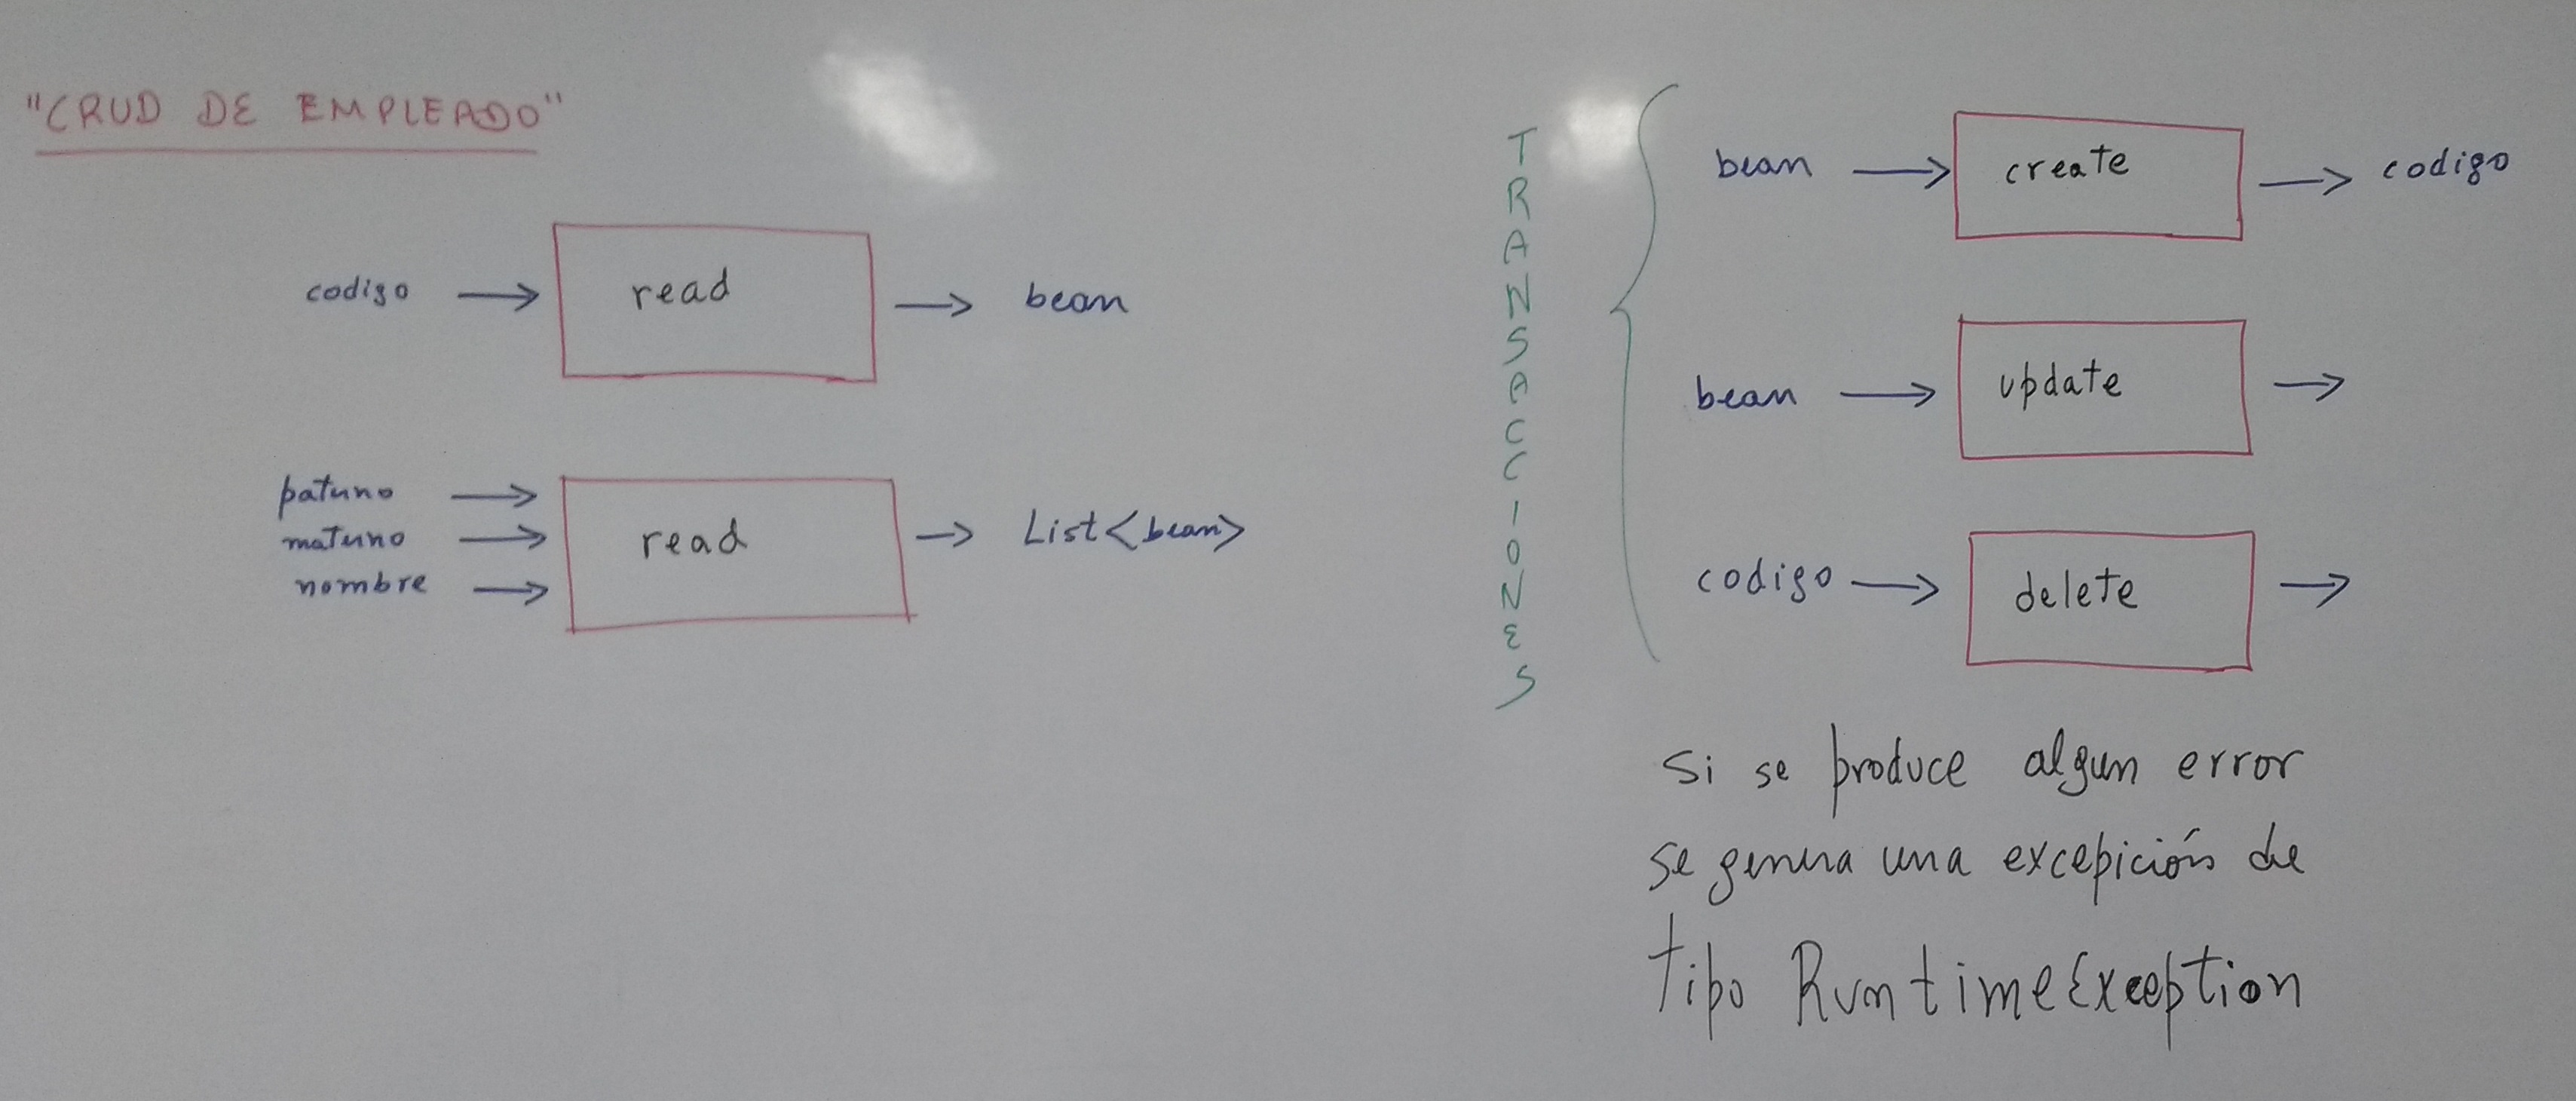 "CRUD DE EMPLEADO"
codigo → read → bean
paterno →
materno → read → List<bean>
nombre →
TRANSACCIONES
bean → create → codigo
bean → update →
codigo → delete →
si se produce algun error
se genera una excepición de
tipo RuntimeException